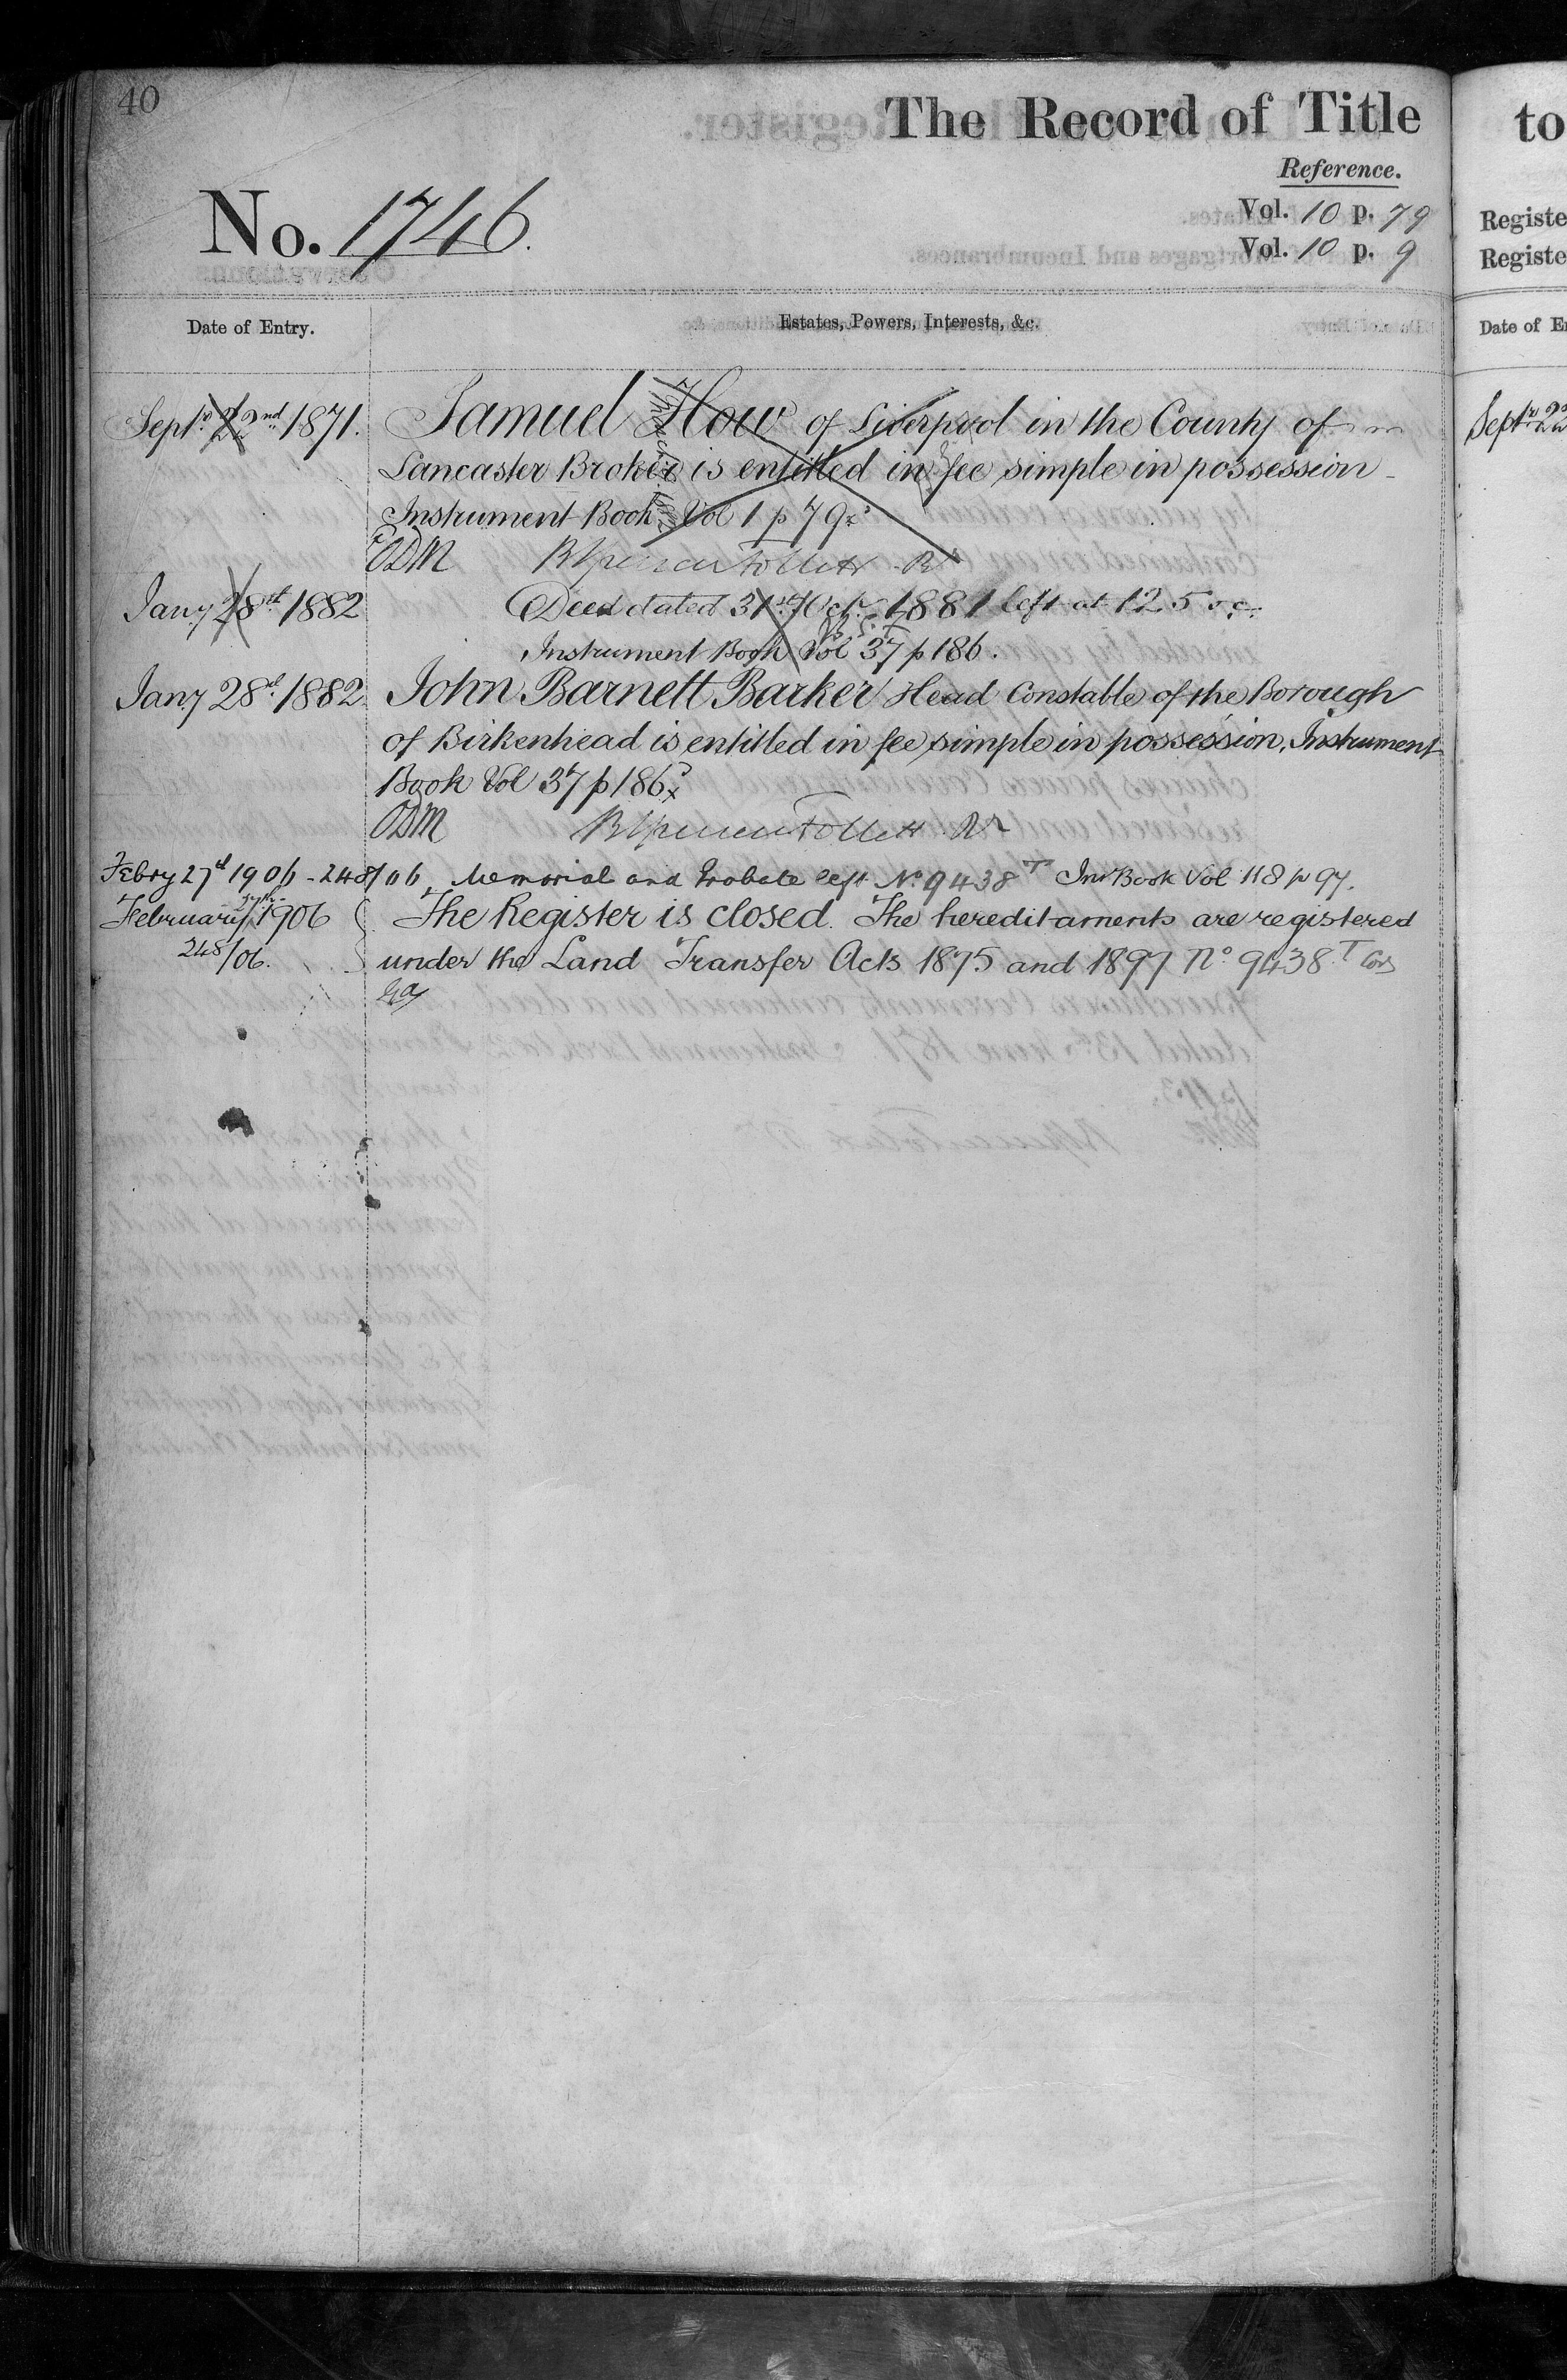 40
The Record of Title
Reference.
No. 1746.
Vol. 10 p. 79
Vol. 10 p. 9
Date of Entry.
Estates, Powers, Interests, &c.
Septr 22nd 1871.
Samuel How of Liverpool in the County of
Lancaster Broker is entitled in fee simple in possession
Instrument Book Vol 1 p 79
ODM
Jany 28th 1882
Deed dated 31st Octr 1881 left at 12.5
Instrument Book Vol 37 p 186.
Jany 28th 1882
John Barnett Barker Head Constable of the Borough
of Birkenhead is entitled in fee simple in possession, Instrument
Book Vol 37 p 186
ODM
Febry 27th 1906 - 248/06, Memorial and Probate left No. 9438 T Ins Book Vol 118 p 97.
February 27th 1906
248/06.
The Register is closed. The hereditaments are registered
under the Land Transfer Acts 1875 and 1897 No 9438 T
to
Registe
Registe
Date of E
Septr 22